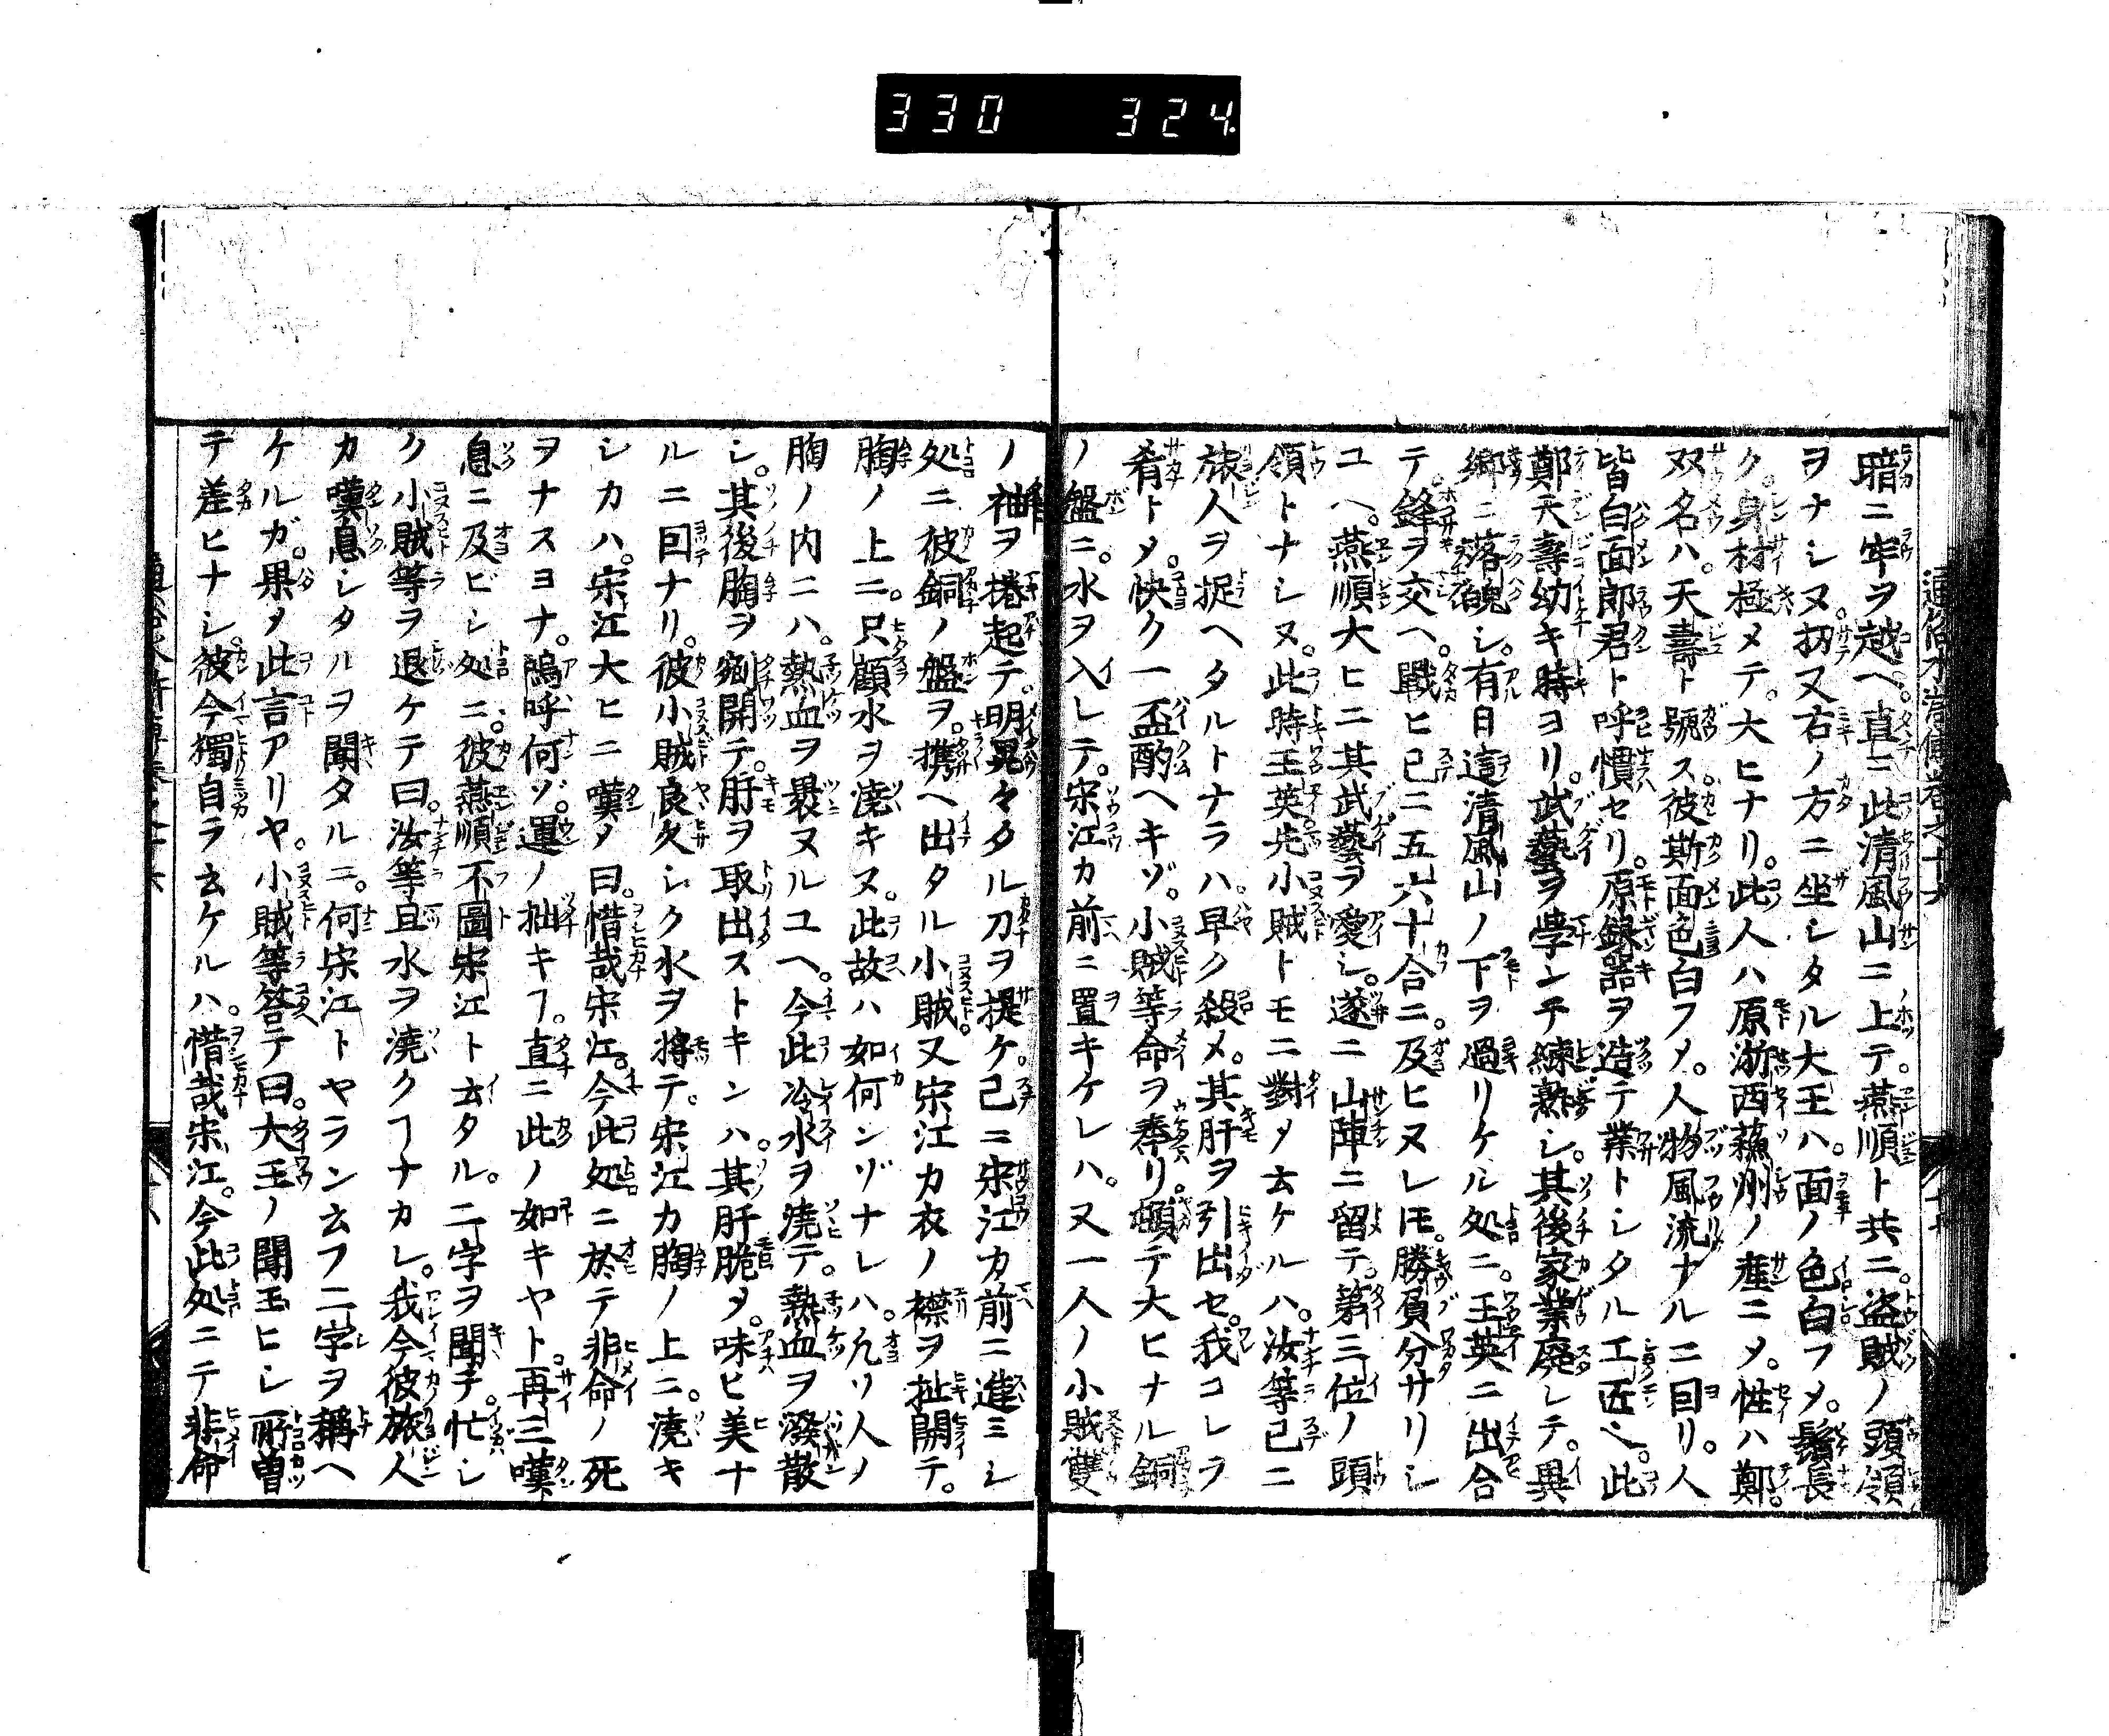 330 324
通俗水滸傳卷之十六
暗ニ牢ヲ越ヘ。直ニ此清風山ニ上テ。燕順ト共ニ。盗賊ノ頭領
ヲナシヌ。扨又右ノ方ニ坐シタル大王ハ。面ノ色白フメ。鬚長
ク。身材極メテ。大ヒナリ。此人ハ原浙西蘓州ノ産ニメ。性ハ鄭。
双名ハ。天壽ト號ス。彼斯面色白フメ。人物風流ナルニ囙リ。人
皆白面郎君ト呼慣セリ。原銀器ヲ造テ業トシタル工匠ヘ。此
鄭天壽幼キ時ヨリ。武藝ヲ學ンテ練熟シ。其後家業廃レテ。異
郷ニ落魄シ。有日這清風山ノ下ヲ過リケル処ニ。王英ニ出合
テ。鋒ヲ交ヘ。戰ヒ已ニ五六十合ニ。及ヒヌレ𪜈。勝負分サリシ
ユヘ。燕順大ヒニ其武藝ヲ愛シ。遂ニ山陣ニ留テ。第三位ノ頭
領トナシヌ。此時王英先小賊トモニ對メ云ケルハ。汝等已ニ
旅人ヲ捉ヘタルトナラハ。早ク殺メ。其肝ヲ引出セ。我コレラ
肴トメ。快ク一盃酌ヘキゾ。小賊等命ヲ奉リ。頓テ大ヒナル銅
ノ盤ニ。水ヲ入レテ。宋江カ前ニ置キケレハ。又一人ノ小賊雙
ノ袖ヲ捲起テ。明晃々タル刀ヲ提ケ。已ニ宋江カ前ニ進ミシ
処ニ彼銅ノ盤ヲ。携ヘ出タル小賊。又宋江カ衣ノ襟ヲ扯開テ。
胸ノ上ニ。只顧水ヲ澆キヌ。此故ハ如何ンゾナレハ。凢ソ人ノ
胸ノ内ニハ。熱血ヲ褁ヌルユヘ。今此冷水ヲ澆テ。熱血ヲ潑散
シ。其後胸ヲ剜開テ。肝ヲ取出ストキンハ。其肝脆メ。味ヒ美ナ
ルニ囙ナリ。彼小賊良久シク水ヲ將テ。宋江カ胸ノ上ニ。澆キ
シカハ。宋江大ヒニ嘆メ曰。惜哉宋江。今此処ニ於テ非命ノ死
ヲナスヨナ。嗚呼何ゾ。運ノ拙キヿ。直ニ此ノ如キヤト。再三嘆
息ニ及ビシ処ニ。彼燕順不圖宋江ト云タル。二字ヲ聞テ。忙シ
ク小賊等ヲ退ケテ曰。汝等且水ヲ澆クヿナカレ。我今彼旅人
カ嘆息シタルヲ聞タルニ。何宋江トヤラン云フ二字ヲ稱ヘ
ケルガ。果メ此言アリヤ。小賊等答テ曰。大王ノ聞玉ヒシ所曽
テ差ヒナシ。彼今獨自ラ云ケルハ。惜哉宋江。今此処ニテ非命